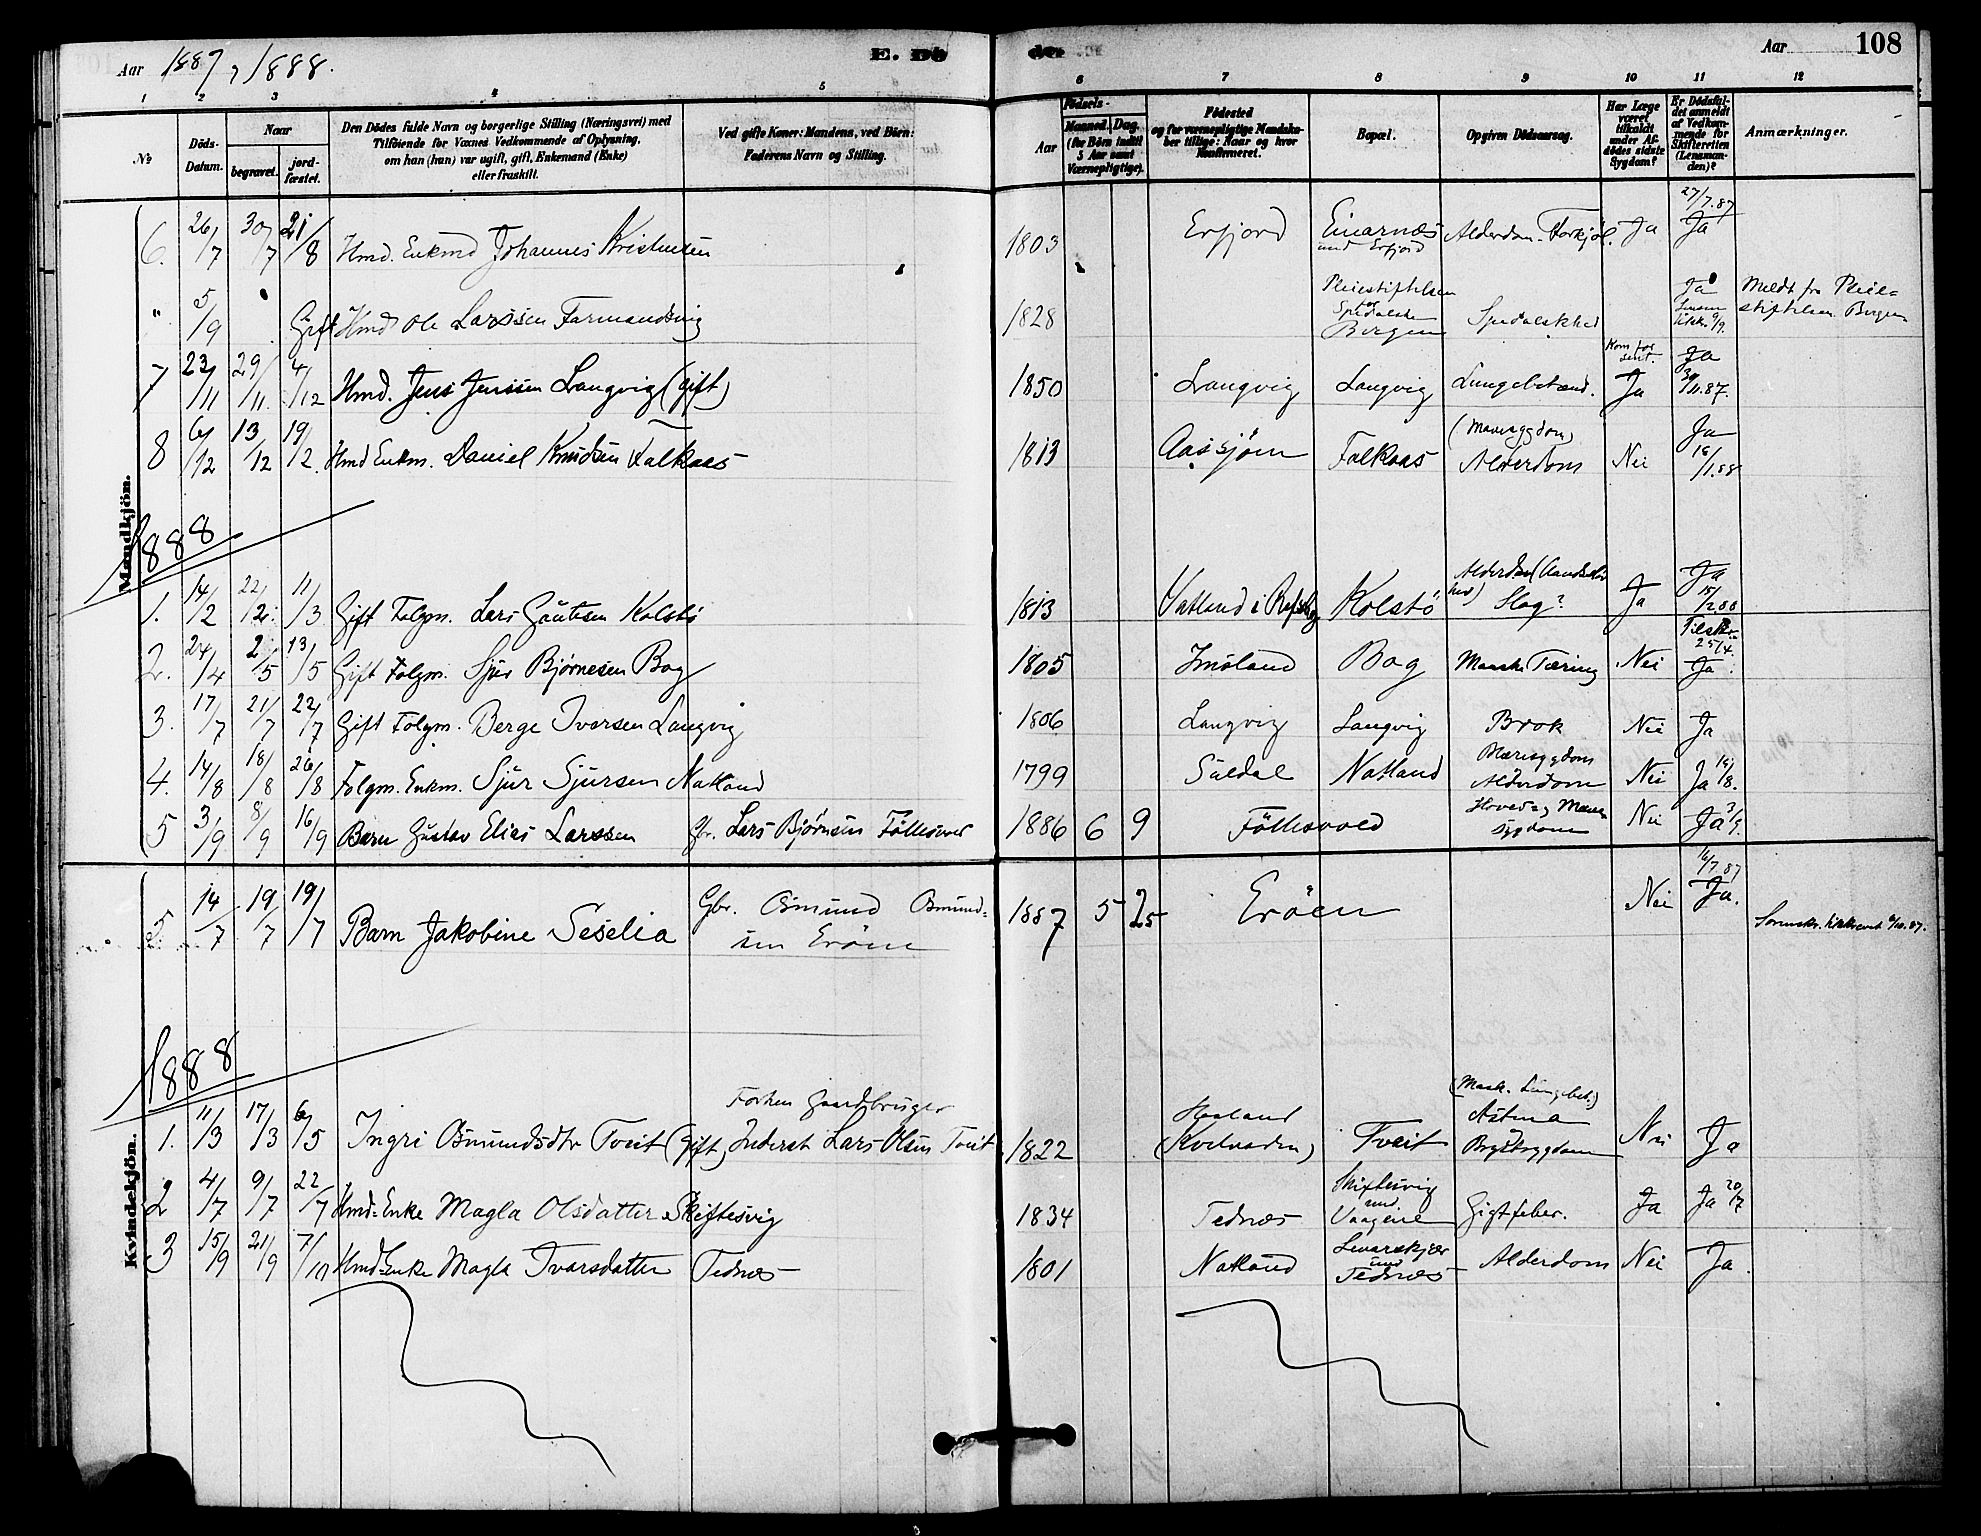 Aar 1887, 1888. E. Dö de. Aar 108
1 2 3 4 5 6 7 8 9 10 11 12
No Döds-Datum. Naar begravet. jordfæstet. Den Dödes fulde Navn og borgerlige Stilling (Næringsvei) med Tilföiende for Voxnes Vedkommende af Oplysning, om han (hun) var ugift, gift, Enkemand (Enke) eller fraskilt. Ved gifte Koner: Mandens, ved Börn: Faderens Navn og Stilling. Födsels- Aar Maaned. Dag. (for Börn indtil 5 Aar samt Værnepligtige). Födested og for værnepligtige Mandskaber tillige: Naar og hvor Konfirmeret. Bopæl. Opgiven Dödsaarsag. Har Læge været tilkaldt under Afdödes sidste Sygdom? Er Dödsfaldet anmeldt af Vedkommende for Skifteretten (Lensmanden)? Anmærkninger.
Mandkjön.
6. 26/7 30/7 21/8 Hmd. Enkmd Johannes Kristensen 1803 Erfjord Einarnæs und Erfjord Alderdom. Forkjöl. Ja 27/7.87 Ja
" 5/9 Gift Hmd Ole Larssen Farmandsvig 1828 Pleiestiftelsen for Spedalske Bergen Spedalskhed Ja 9/9. Meldt fra Pleiestiftelsen Bergen
7 23/11 29/11 4/12 Hmd. Jens Jenssen Langvig (gift) 1850 Langvig Langvig Lungebetænd. Kom for sent. Ja Ja 30/11.87.
8 6/12 13/12 19/12. Hmd Enkm. Daniel Knudsen Falkaas 1813 Aassjøen Falkaas (Mavesygdom) Alderdom Nei Ja 16/1.88
1888
1. 14/2 22/2. 11/3 Gift Folgm. Lars Gautesen Kolstö 1813 Vatland i Kolstö Slag? Ja Ja 15/2 88
2. 24/4 2/5 13/5 Gift Folgm. Sjur Bjørnesen Bog 1805 Imsland Bog Maaske Tæring Nei 25/4. Ja
3. 17/7 21/7 22/7 Gift Folgm. Berge Ivarsen Langvig 1806 Langvig Langvig Brok Nei Ja
4. 14/8 18/8 26/8 Folgm. Enkm. Sjur Sjursen Natland 1799 Suldal Natland Mavesygdom Alderdom Nei Ja 19/8.
5 3/9 8/9 16/9 Barn Gustav Elias Larssen Gbr. Lars Bjørnsen Föllesvold 1886 6 9 Föllesvold Hoved og Mavesygdom Nei Ja 3/9.
Kvindekjön.
5 14/7 19/7 19/7 Barn Jakobine Seselia Gbr. Osmund Osmundsen Eröen 1887 5 25 Eröen Nei 16/7 87 Ja.
1888
1. 11/3 17/3 6/5 Ingri Osmundsdtr Tveit (gift) Forhen Gaardbruger Inderst Lars Olsen Tveit 1822 Haaland Tveit (Maask. Lungebet.) Astma Brystsygdom Nei Ja
2 4/7 9/7 22/7 Hmd-Enke Magla Olsdatter Skiftesvig 1834 Tednæs Skiftesvig und. Vaagene Gigtfeber. Ja Ja 20/7
3 15/9 21/9 7/10 Hmd-Enke Magla Ivarsdatter Tednæs 1801 Natland Levarskjær und Tednæs Alderdom Nei Ja